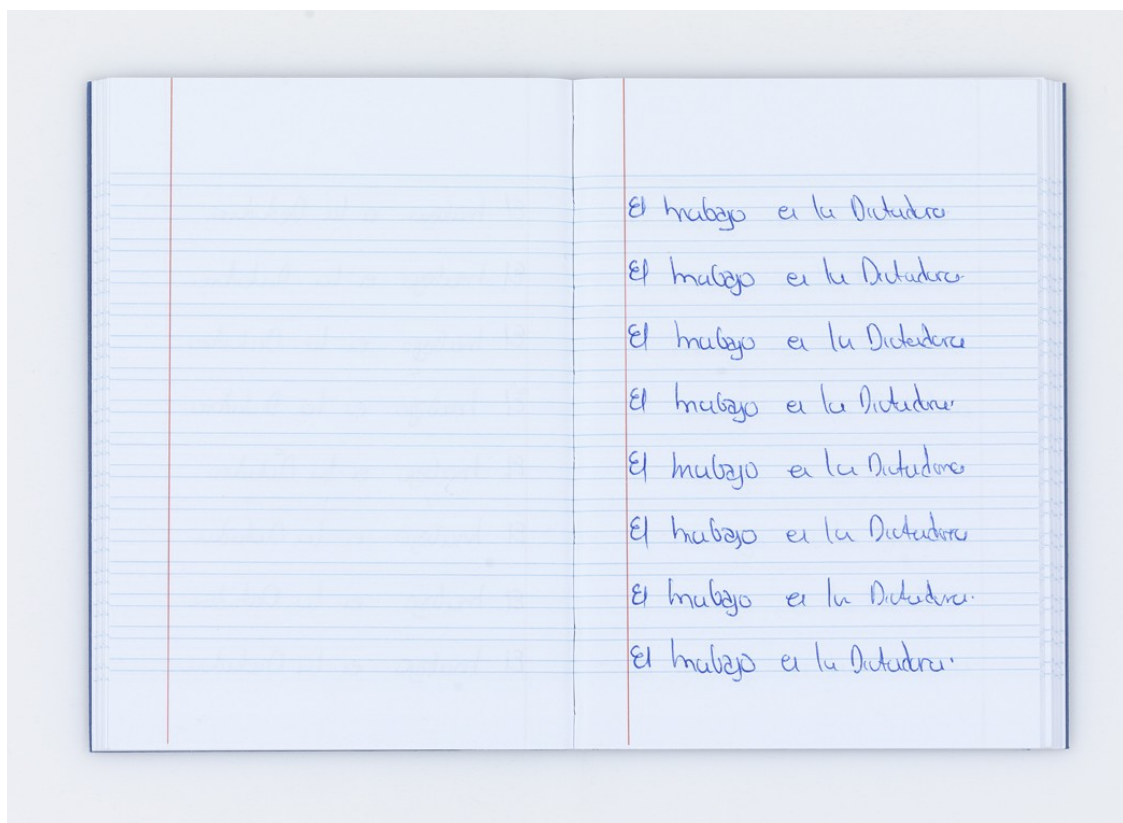 El trabajo es la Dictadura
El trabajo es la Dictadura
El trabajo es la Dictadura
El trabajo es la Dictadura
El trabajo es la Dictadura
El trabajo es la Dictadura
El trabajo es la Dictadura.
El trabajo es la Dictadura.